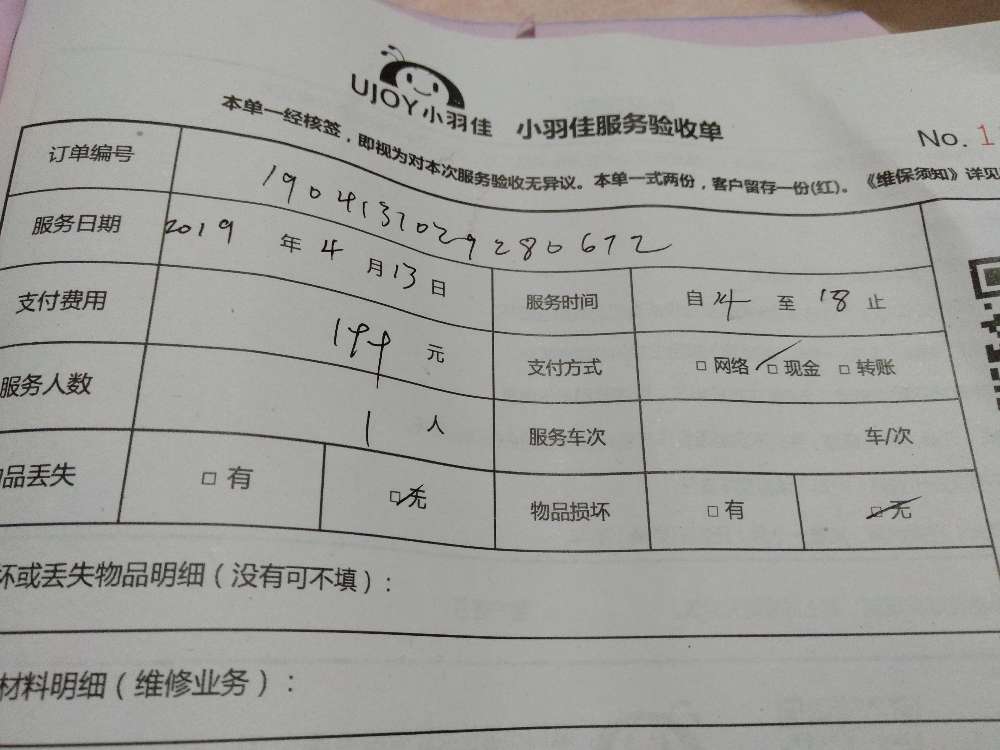 UJOY小羽佳 小羽佳服务验收单
No. 1
本单一经核签，即视为对本次服务验收无异议。本单一式两份，客户留存一份(红)。《维保须知》详见
订单编号 1904131029280672
服务日期 2019 年 4 月 13 日 服务时间 自 14 至 18 止
支付费用 199 元 支付方式 □ 网络 □ 现金 □ 转账
服务人数 1 人 服务车次 车/次
品丢失 □ 有 □ 无 物品损坏 □ 有 □ 无
坏或丢失物品明细（没有可不填）：
材料明细（维修业务）：